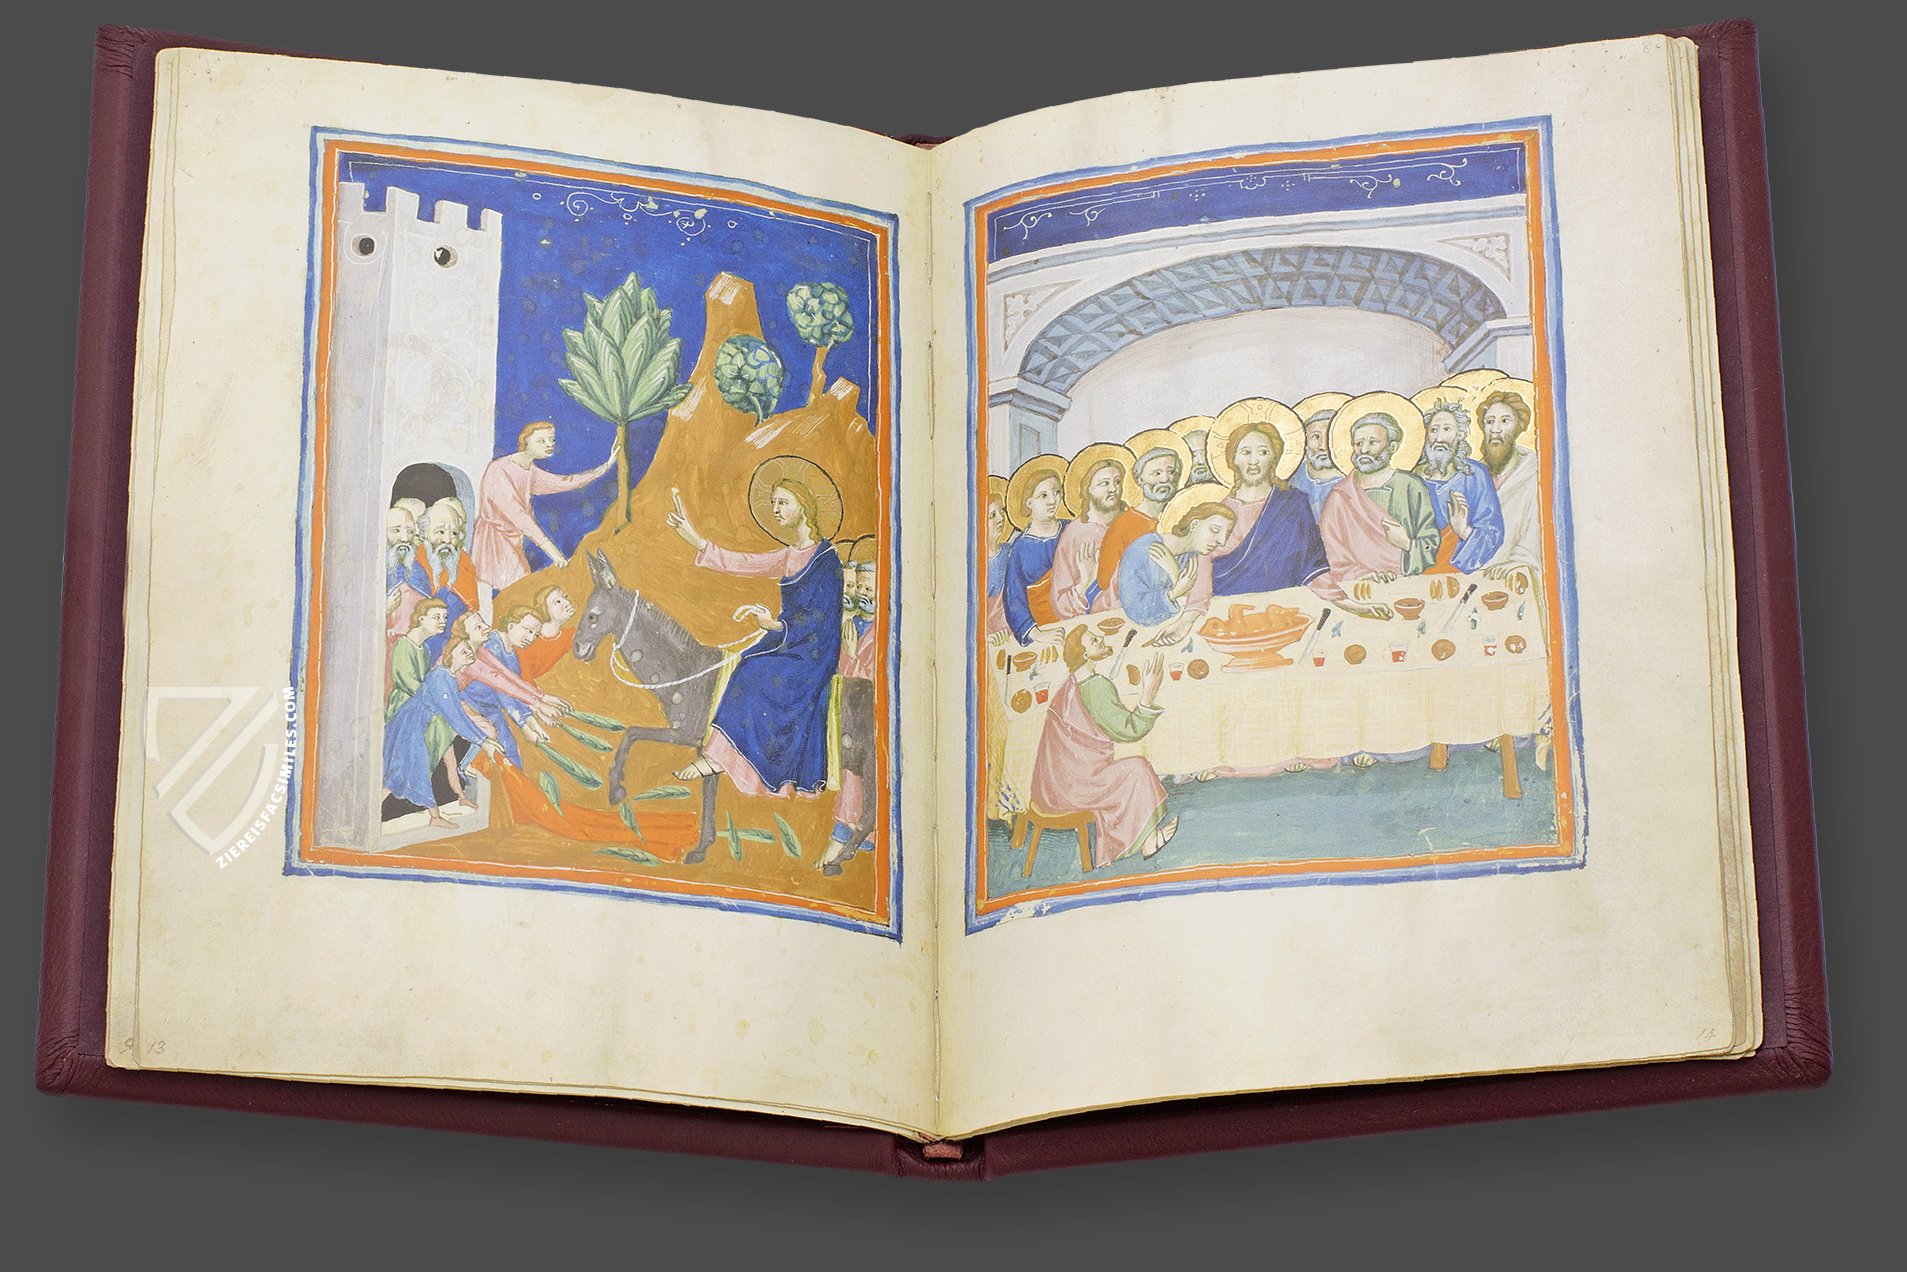 8
ZIEREISFACSIMILES.COM
13
14